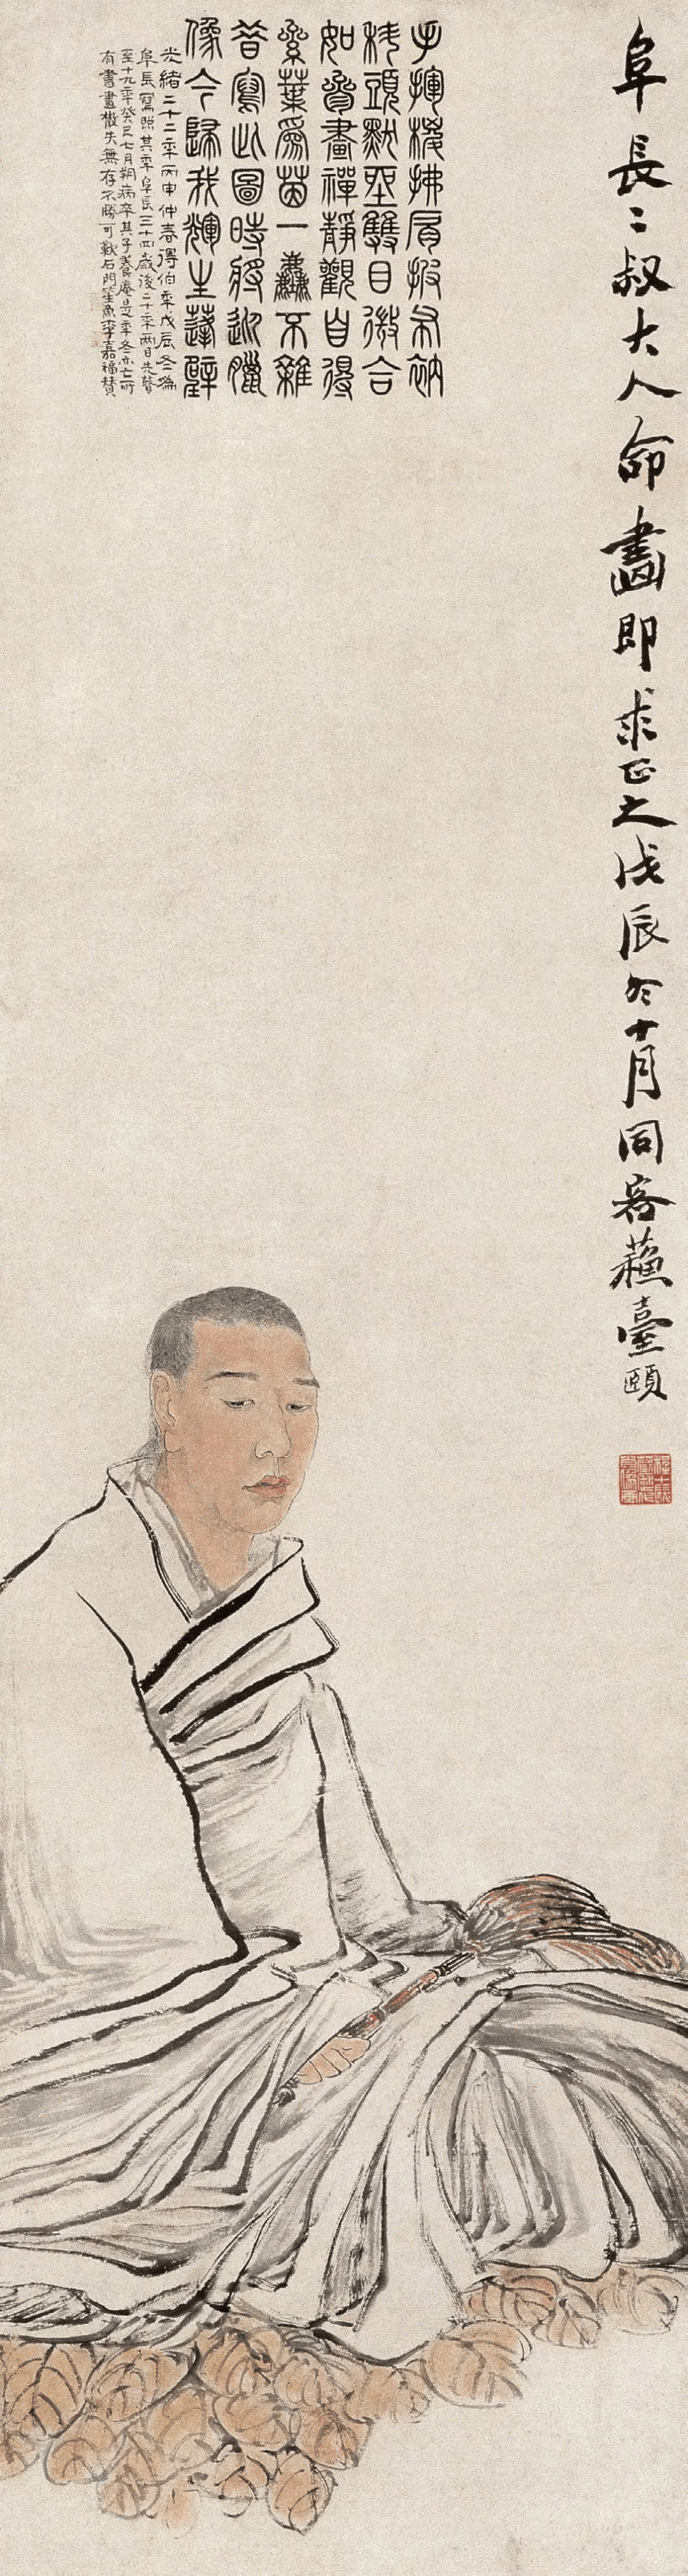 阜長二叔大人命畫即求正之戊辰冬十月同客蘇臺頤
手揮椶拂肩披布衲
秃頭默坐雙目微合
如參畫禪靜觀自得
絫葉爲茵一塵不雜
昔寫此圖時將迎臘
像今歸我輝生蓬壁
光緒二十二年丙申仲春得伯年戊辰冬爲
阜長寫照其年阜長三十四歲後二十年兩目失瞽
至十九年癸巳七月朔病卒其子養庵是年冬亦亡所
有書畫散失無存不勝可歎石門笙魚李嘉福贊